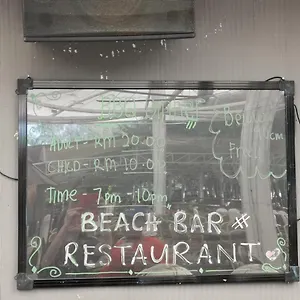 ADULT - RM 20.00
CHILD - RM 10.00
Free
Time - 7pm - 10pm
BEACH BAR #
RESTAURANT